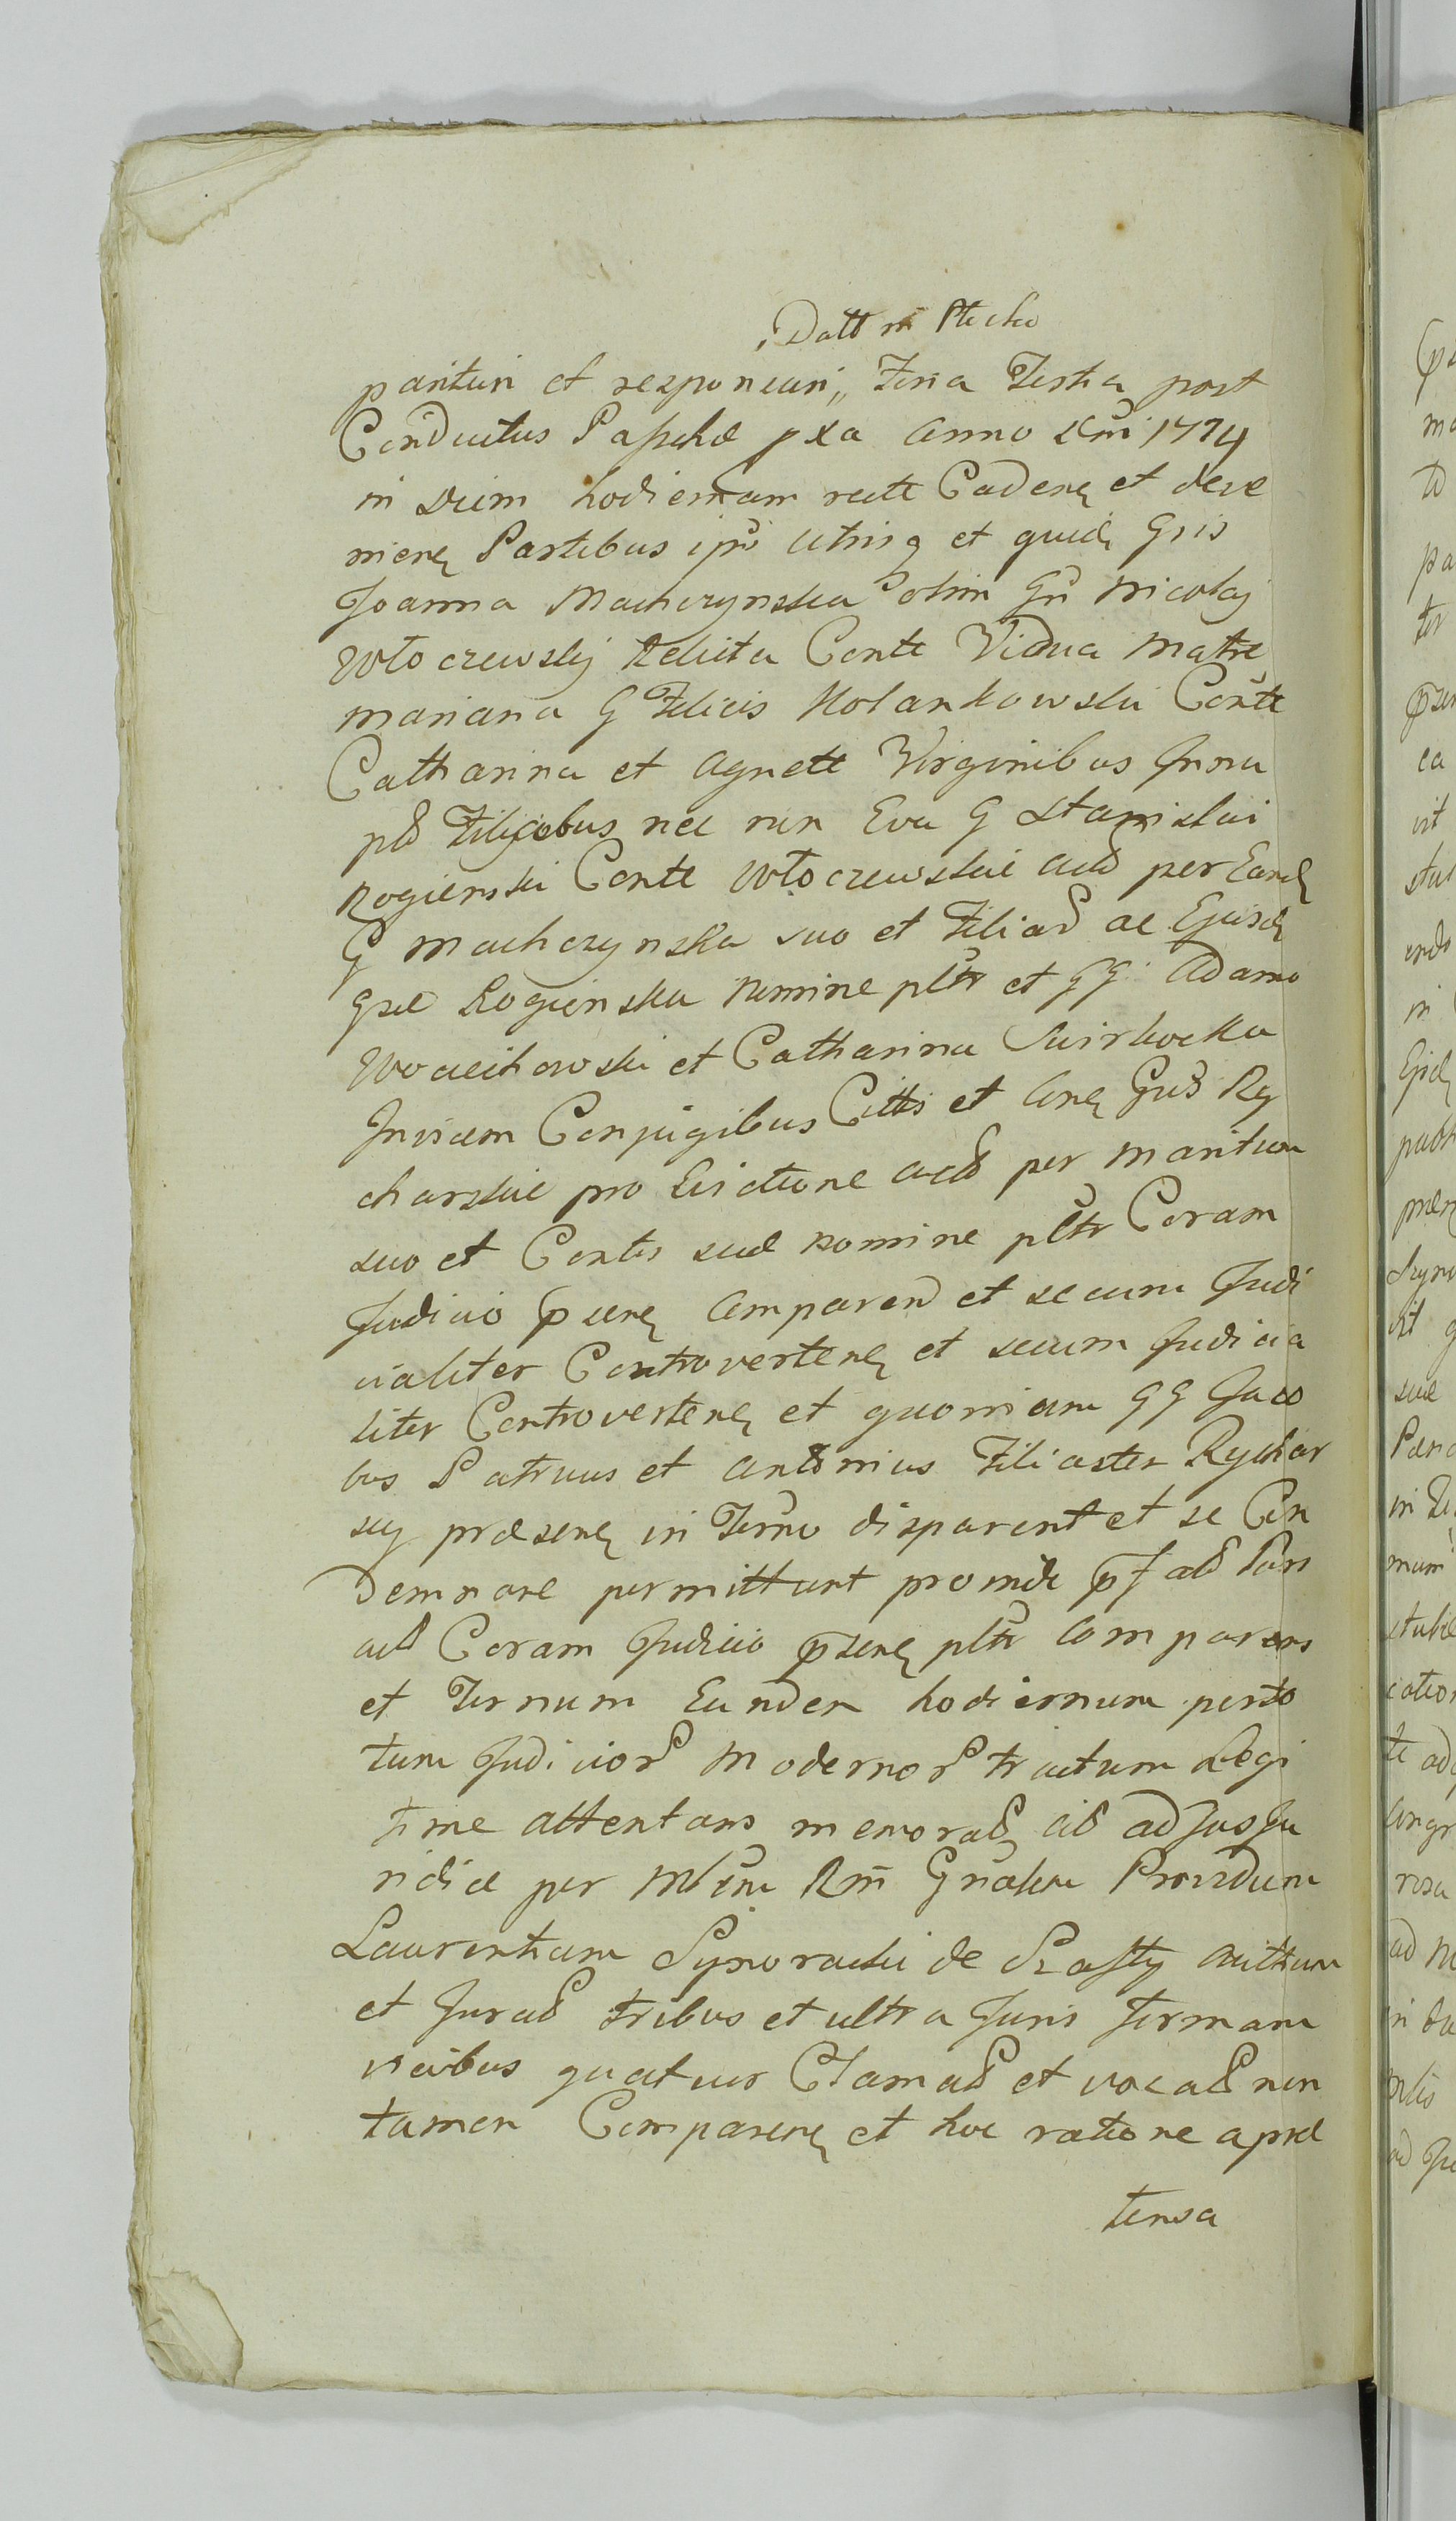 Datt in
parituri et responsuri,, Feria Tertia post
Conductus Paschae pxa Anno Dni 1774
in Diem hodiernam recte Caden et deve
nien Partibus ipsis utrisq et quid Gsis
Joanna Machczynska olim Gn Nicolaj
Włoczewskj Relicta Conte Vidua Matre
Mariana G Felicis Kolankowski Conte
Catharina et Agnete Virginibus Innu
ptis Filiabus nec non Eva G Stanislai
Rogienski Conte Włoczewskie actd per Eand
G Machczynska suo et Filiar ac Ejusd
Gsae Rogienska nomine pltr et GG Adamo
Woyciechowski et Catharina
Invicem Conjugibus Cittis et Gnd Ry
charskie pro Evictione actd per Maritum
suo et Contis suae nomine pltr Coram
Judicio psen Comparend et secum Judi
cialiter Controverten et secum Judicia
liter Controverten et quoniam GG Jaco
bus Patruus et Antonius Filiaster Rychar
scy praesen in Terno disparent et se Con
demnare permittunt proinde pfad Pars
actd Coram Judicio psen pltr Comparens
et Ternum Eundem hodiernum per to
tum Judicior Modernor tractum Legi
time attentans memorad Citd ad Jus Ju
ridice per Mlem Rni Gnalem Providum
Laurentium de authum
et Jurad tribus et ultra Juris formam
vicibus quatuor Clamad et vocad non
tamen Comparen et hoc ratione aprae
tensa